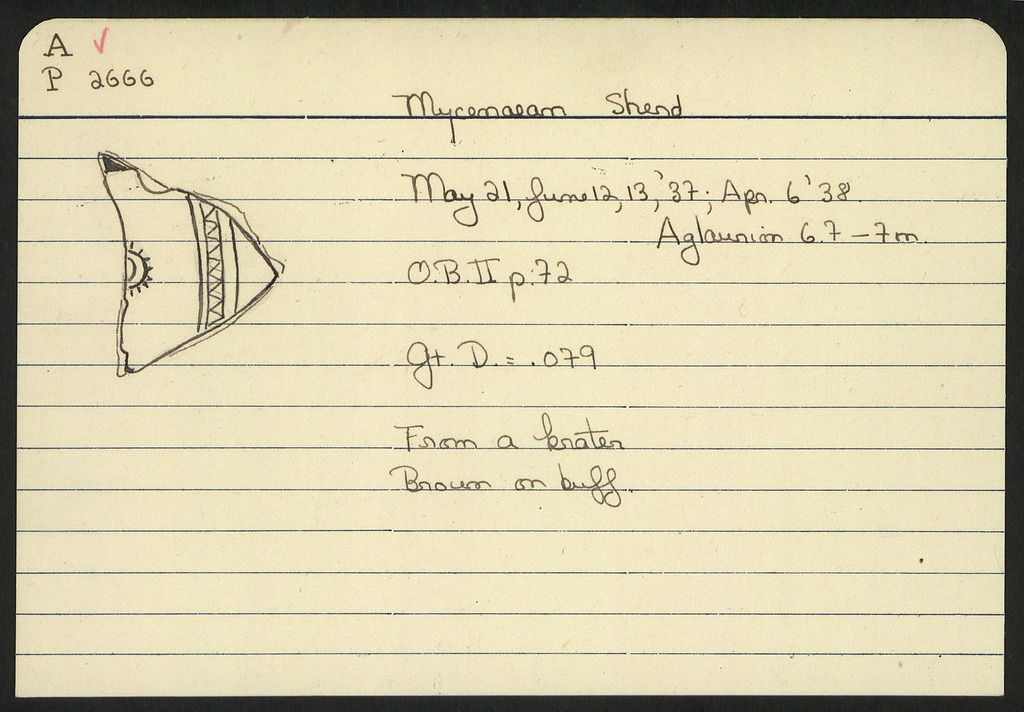 A ✓
P 2666
Mycenaean Sherd
May 21, June 12, 13, '37; Apr. 6 '38.
Aglaurion 6.7 – 7m.
O.B. II p. 72
Gt. D. = .079
From a krater
Brown on buff.